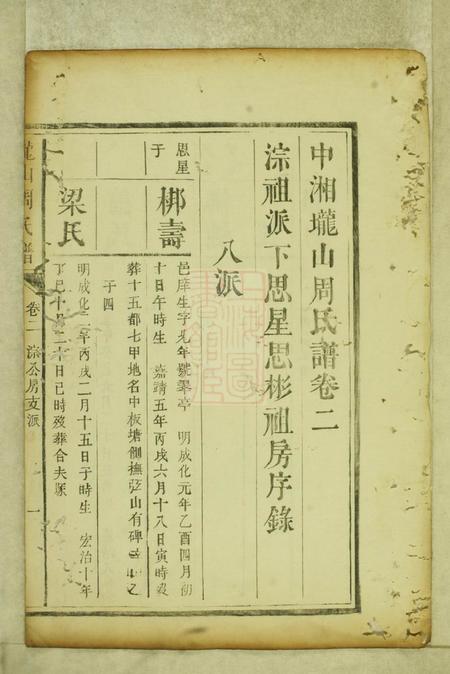 中湘壠山周氏譜卷二
淙祖派下思星思彬祖房序錄
八派
思星
于
梆壽
邑庠生字光年號翠亭 明成化元年乙酉四月初
十日午時生 嘉靖五年丙戌六月十八日寅時歿
葬十五都七甲地名中板塘側撫弦山有碑 山乙
于四
梁氏
明成化二年丙戌二月十五日子時生 宏治十年
丁巳十月二十日巳時歿葬合夫冢
壠山周氏譜
卷二 淙公房支派
一